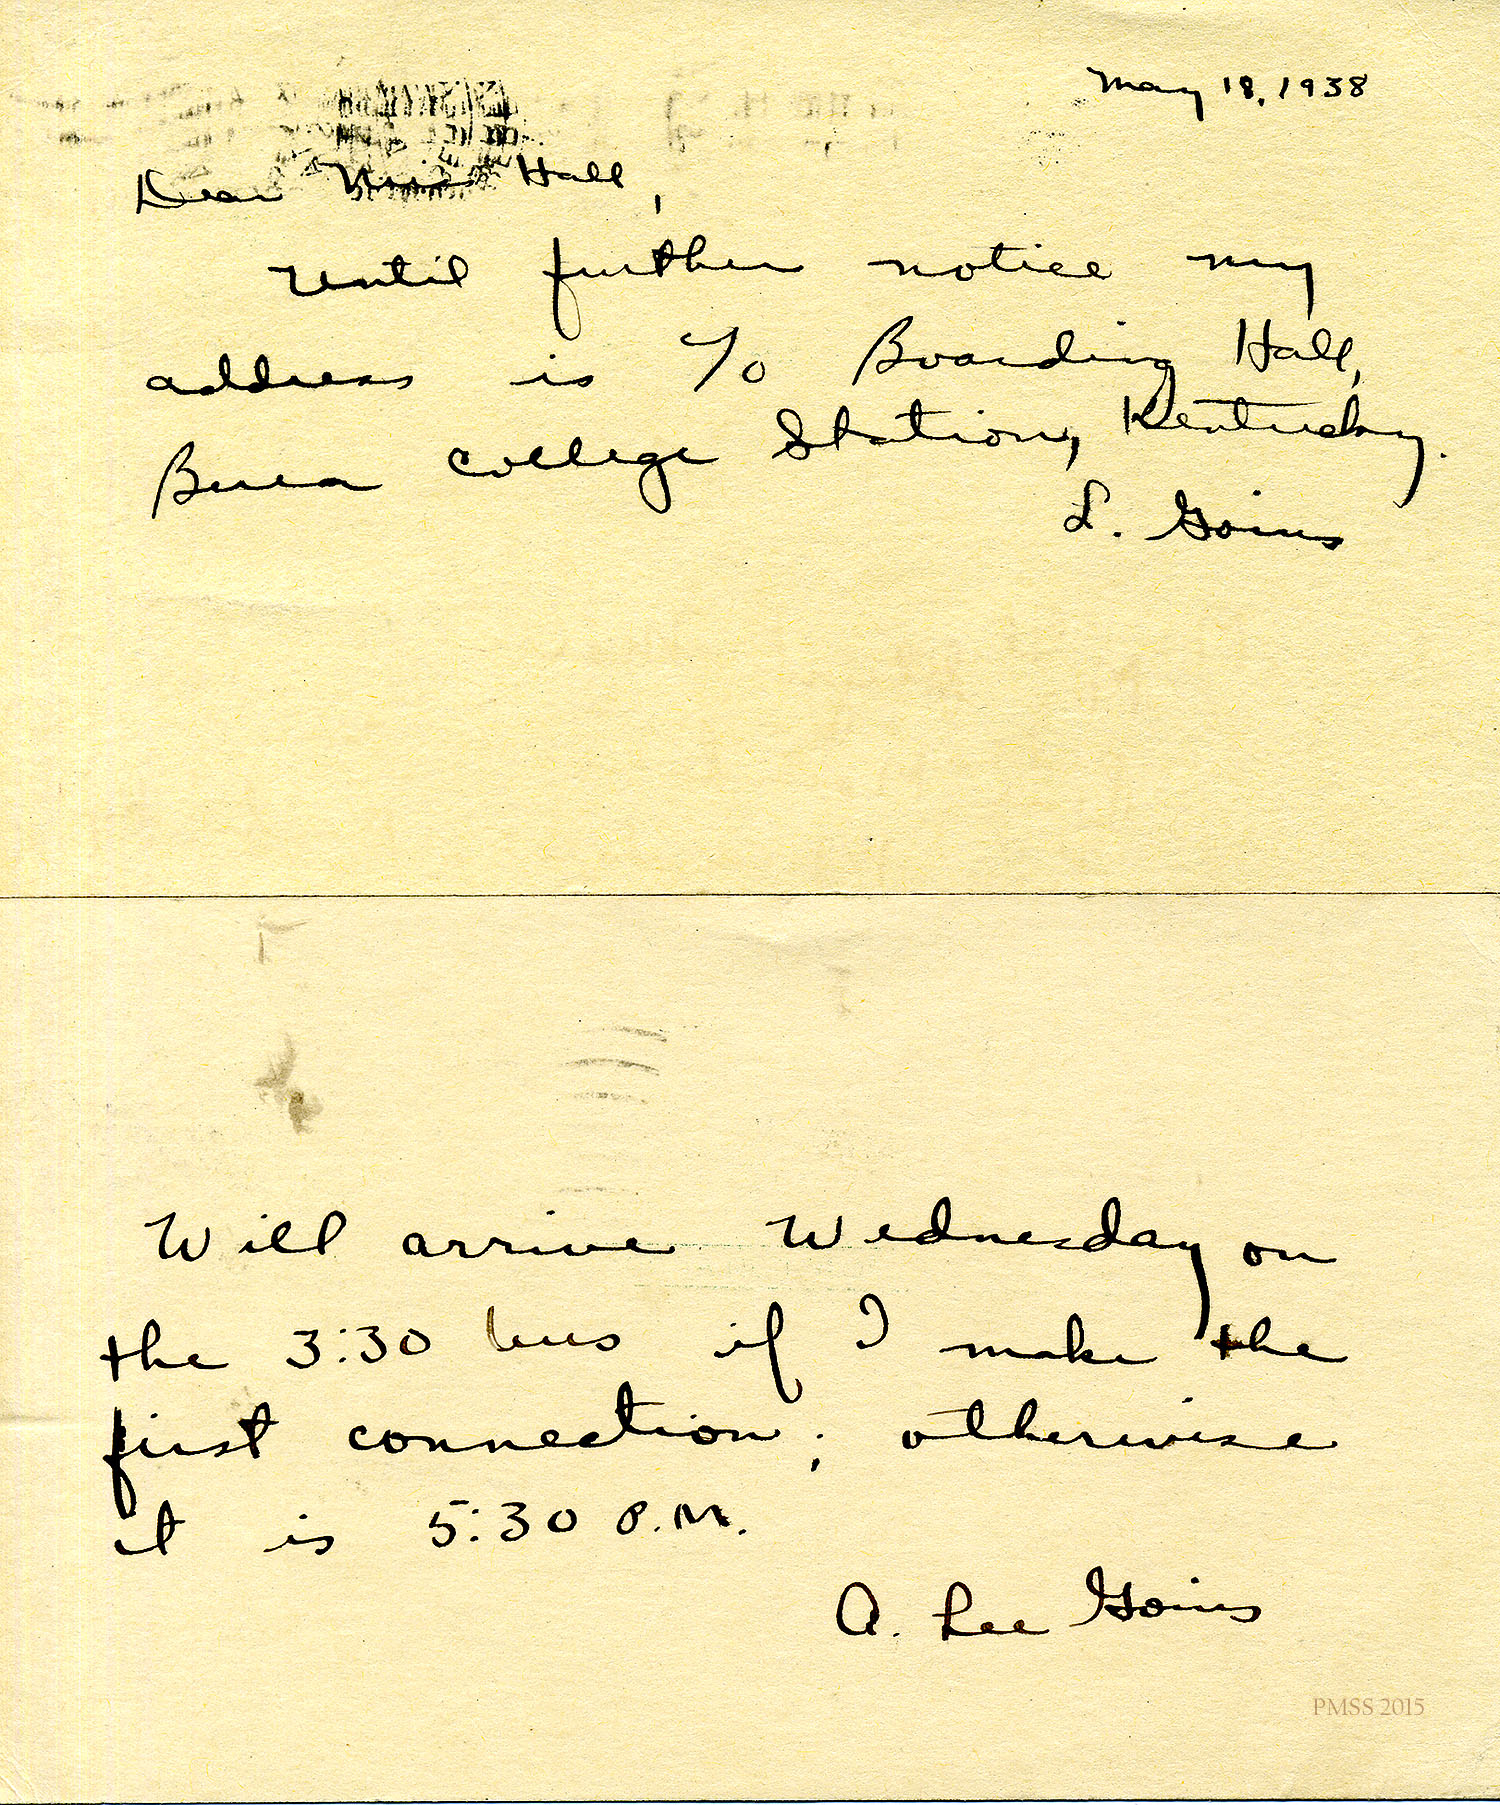 May 18, 1938
Dear Miss Hall,
Until further notice my
address is c/o Boarding Hall,
Berea College Station, Kentucky.
L. Goins
Will arrive Wednesday on
the 3:30 bus if I make the
first connection; otherwise
it is 5:30 P.M.
A. Lee Goins
PMSS 2015